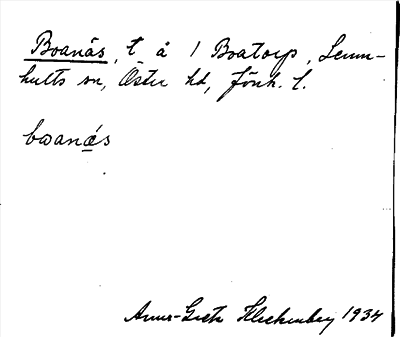 Boanäs, t å 1 Boatorp, Lemn-
hults sn, Östra hd, Jönk. l.
boanǽs
Anna-Greta Hleckenberg 1934